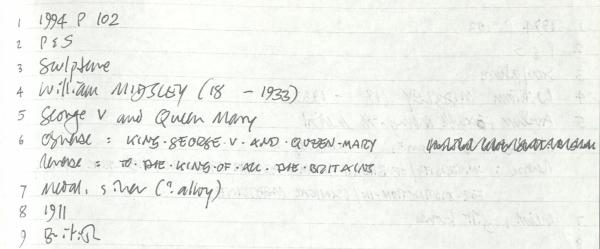 1 1994 P 102
2 P & S
3 Sculpture
4 William MIDGLEY (18 - 1933)
5 George V and Queen Mary
6 Obverse : KING·GEORGE·V·AND·QUEEN·MARY
Reverse : TO·THE·KING·OF·ALL·THE·BRITAINS
7 Metal, silver (?alloy)
8 1911
9 British